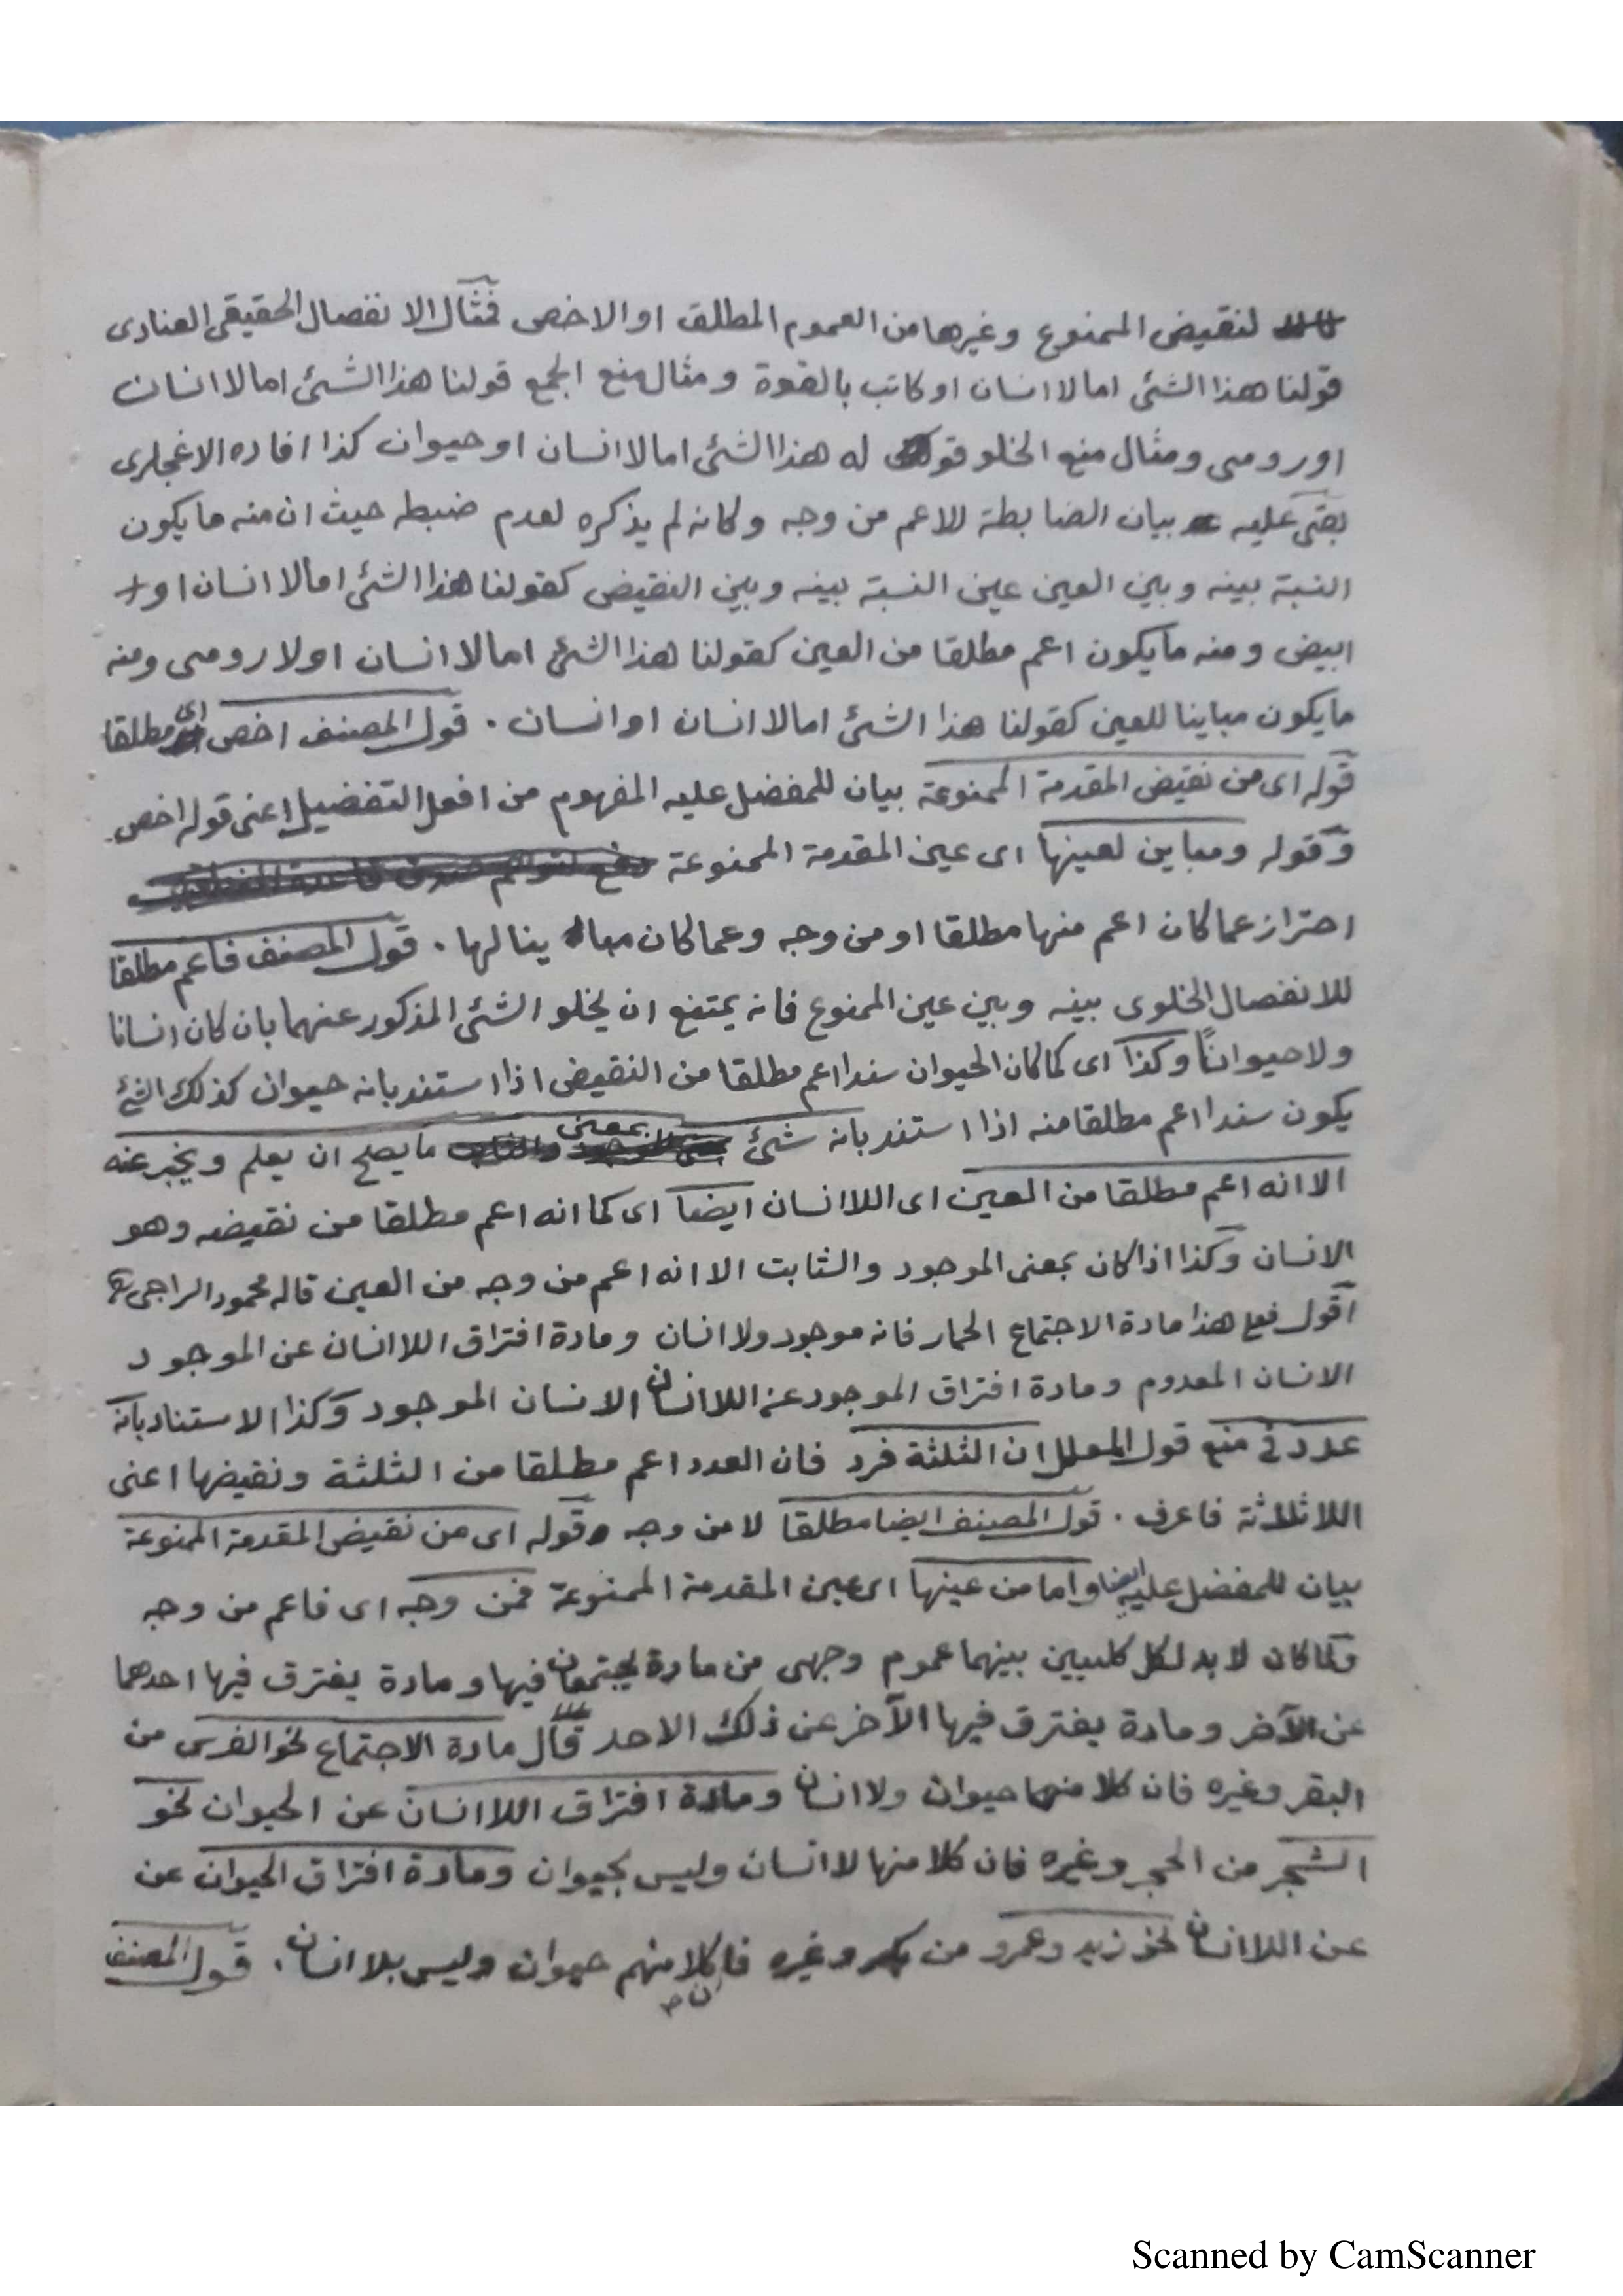 لنقيض الممنوع وغيرها من العموم المطلق او الاخص فمثال الانفصال الحقيقى العنادى
قولنا هذا الشئ اما لا انسان او كاتب بالقوة ومثال منع الجمع قولنا هذا الشئ اما لا انسان
او رومى ومثال منع الخلو قو له هذا الشئ اما لا انسان او حيوان كذا افاده الاغجلرى
بقى عليه بيان الضابطة للاعم من وجه وكانه لم يذكره لعدم ضبطه حيث ان منه ما يكون
النسبة بينه وبين العين عين النسبة بينه وبين النقيض كقولنا هذا الشئ اما لا انسان او
ابيض ومنه ما يكون اعم مطلقا من العين كقولنا هذا الشئ اما لا انسان او لا رومى ومنه
ما يكون مباينا للعين كقولنا هذا الشئ اما لا انسان او انسان . قول المصنف اخص اى مطلقا
قوله اى من نقيض المقدمة الممنوعة بيان للمفضل عليه المفهوم من افعل التفضيل اعنى قوله اخص
وقوله ومباين لعينها اى عين المقدمة الممنوعة
احتراز عما كان اعم منها مطلقا او من وجه وعما كان مبا ينا لها . قول المصنف فاعم مطلقا
للانفصال الخلوى بينه وبين عين الممنوع فانه يمتنع ان يخلو الشئ المذكور عنهما بان كان انسانا
ولا حيوانًا وكذا اى كما كان الحيوان سندا اعم مطلقا من النقيض اذا استند بانه حيوان كذلك الشئ
يكون سندا اعم مطلقا منه اذا استند بانه شئ بمعنى ما يصلح ان يعلم ويخبر عنه
الا انه اعم مطلقا من العين اى اللاانسان ايضا اى كما انه اعم مطلقا من نقيضه وهو
الانسان وكذا اذا كان بمعنى الموجود والثابت الا انه اعم من وجه من العين قاله محمود الراجى
اقول فعلى هذا مادة الاجتماع الحمار فانه موجود ولا انسان ومادة افتراق اللاانسان عن الموجود
الانسان المعدوم ومادة افتراق الموجود عن اللاانسان الانسان الموجود وكذا الاستناد بانه
عدد فى منع قول المعلل ان الثلثة فرد فان العدد اعم مطلقا من الثلثة ونقيضها اعنى
اللاثلاثة فاعرف . قول المصنف ايضا مطلقا لا من وجه وقوله اى من نقيض المقدمة الممنوعة
بيان للمفضل عليه ايضا واما من عينها اى عين المقدمة الممنوعة فمن وجه اى فاعم من وجه
وكما كان لا بد لكل كليين بينهما عموم وجهى من مادة يجتمعان فيها ومادة يفترق فيها احدهما
عن الآخر ومادة يفترق فيها الآخر عن ذلك الاحد قال مادة الاجتماع نحو الفرس من
البقر وغيره فان كلا منهما حيوان ولا انسان ومادة افتراق اللاانسان عن الحيوان نحو
الشجر من الحجر وغيره فان كلا منها لا انسان وليس بحيوان ومادة افتراق الحيوان عن
عن اللاانسان نحو زيد وعمرو من بكر وغيره فان كلا منهم حيوان وليس بلا انسان . قول المصنف
Scanned by CamScanner